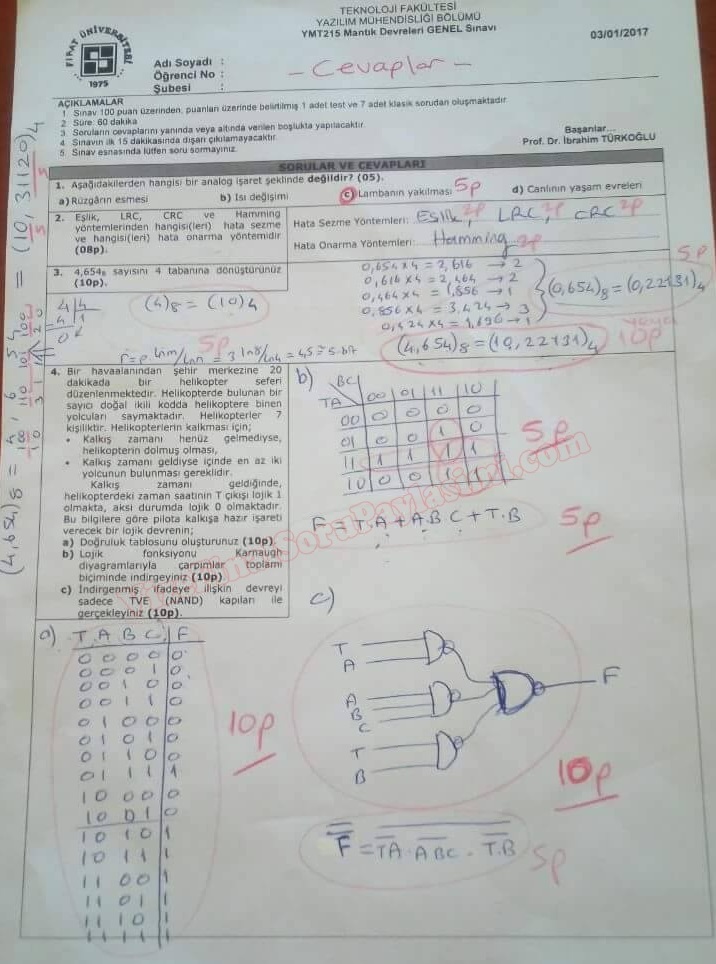 TEKNOLOJİ FAKÜLTESİ
YAZILIM MÜHENDİSLİĞİ BÖLÜMÜ
YMT215 Mantık Devreleri GENEL Sınavı
03/01/2017
FIRAT ÜNİVERSİTESİ
1975
Adı Soyadı :
Öğrenci No :
Şubesi :
- Cevaplar -
AÇIKLAMALAR
1 Sınav 100 puan üzerinden, puanları üzerinde belirtilmiş 1 adet test ve 7 adet klasik sorudan oluşmaktadır
2 Süre: 60 dakika
3. Soruların cevaplarını yanında veya altında verilen boşlukta yapılacaktır.
4. Sınavın ilk 15 dakikasında dışarı çıkılamayacaktır.
5. Sınav esnasında lütfen soru sormayınız.
Başarılar...
Prof. Dr. İbrahim TÜRKOĞLU
SORULAR VE CEVAPLARI
1. Aşağıdakilerden hangisi bir analog işaret şeklinde değildir? (05).
a) Rüzgârın esmesi b) Isı değişimi c) Lambanın yakılması 5p d) Canlının yaşam evreleri
2. Eşlik, LRC, CRC ve Hamming
yöntemlerinden hangisi(leri) hata sezme
ve hangisi(leri) hata onarma yöntemidir
(08p).
Hata Sezme Yöntemleri: Eşlik, 2p LRC, 2p CRC 2p
Hata Onarma Yöntemleri: Hamming 2p
3. 4,654₈ sayısını 4 tabanına dönüştürünüz
(10p).
4 4
4 1
0
(4)₈ = (10)₄
5p
0,654x4 = 2,616 → 2
0,616x4 = 2,464 → 2
0,464x4 = 1,856 → 1
0,856x4 = 3,424 → 3
0,424x4 = 1,696 → 1
(0,654)₈ = (0,22131)₄
5p
(4,654)₈ = (10,22131)₄
veya
10p
= 3 ln8/ln4 = 4,5 ≅ 5 bit
(4,654)₈ =
= (10,31120)₄
4. Bir havaalanından şehir merkezine 20
dakikada bir helikopter seferi
düzenlenmektedir. Helikopterde bulunan bir
sayıcı doğal ikili kodda helikoptere binen
yolcuları saymaktadır. Helikopterler 7
kişiliktir. Helikopterlerin kalkması için;
• Kalkış zamanı henüz gelmediyse,
helikopterin dolmuş olması,
• Kalkış zamanı geldiyse içinde en az iki
yolcunun bulunması gereklidir.
Kalkış zamanı geldiğinde,
helikopterdeki zaman saatinin T çıkışı lojik 1
olmakta, aksi durumda lojik 0 olmaktadır.
Bu bilgilere göre pilota kalkışa hazır işareti
verecek bir lojik devrenin;
a) Doğruluk tablosunu oluşturunuz (10p)
b) Lojik fonksiyonu Karnaugh
diyagramlarıyla çarpımlar toplamı
biçiminde indirgeyiniz (10p)
c) İndirgenmiş ifadeye ilişkin devreyi
sadece TVE (NAND) kapıları ile
gerçekleyiniz (10p).
b)
BC
TA 00 01 11 10
00 0 0 0 0
01 0 0 1 0
11 1 1 1 1
10 0 0 1 1
5p
F = T.A + A.B C + T.B
5p
c)
T
A
A
B
C
T
B
F
10p
F = TA . ABC . T.B
5p
a)
T A B C F
0 0 0 0 0
0 0 0 1 0
0 0 1 0 0
0 0 1 1 0
0 1 0 0 0
0 1 0 1 0
0 1 1 0 0
0 1 1 1 1
1 0 0 0 0
1 0 0 1 0
1 0 1 0 1
1 0 1 1 1
1 1 0 0 1
1 1 0 1 1
1 1 1 0 1
1 1 1 1 1
10p